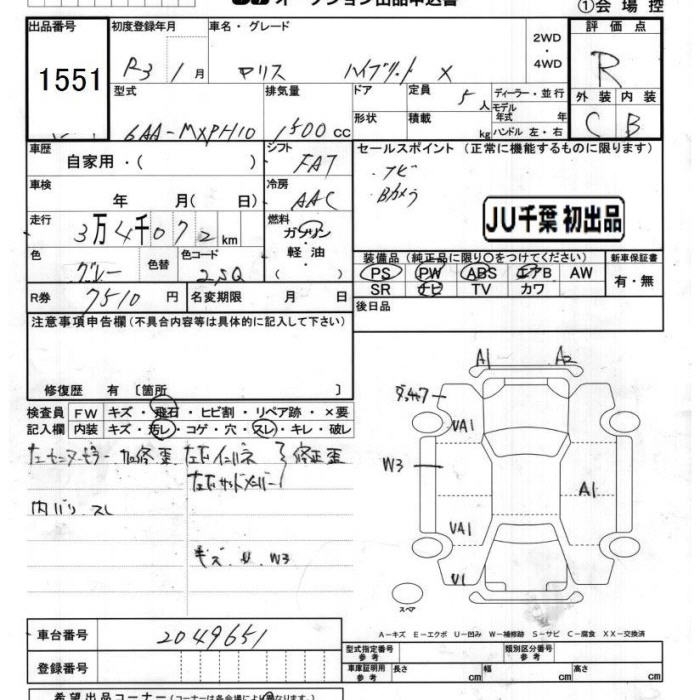 オークション出品申込書
①会場控
出品番号 初度登録年月 車名・グレード 2WD ・ 4WD 評価点
1551 R3 / 1月 ヤリス ハイブリット X R
型式 排気量 ドア 定員 ディーラー・並行 外装 内装
6AA-MXPH10 1500 cc 5人 モデル年式 年 C B
形状 積載 kg ハンドル 左・右
車歴 自家用・( ) シフト FAT セールスポイント(正常に機能するものに限ります)
車検 年 月( 日) 冷房 AAC ・ナビ
・Bカメラ
JU千葉 初出品
走行 3万4千072km 燃料 ガソリン・軽油・( )
装備品(純正品に限り○をつけてください) 新車保証書
色 グレー 色替 色コード PS PW ABS エアB AW 有・無
SR ナビ TV カワ
R券 7510円 名変期限 月 日 後日品
注意事項申告欄(不具合内容等は具体的に記入して下さい)
修復歴 有〔箇所 〕
検査員 FW キズ・飛石・ヒビ割・リペア跡・×要
記入欄 内装 キズ・汚レ・コゲ・穴・スレ・キレ・破レ
左センターピラー 左右インパネ 修正歪
左右サイドメンバー
内バリ スレ
キズ U W3
A1 A2
VA1
W3
A1
VA1
U1
スペア
A-キズ E-エクボ U-凹み W-補修跡 S-サビ C-腐食 XX-交換済
車台番号 2049651 型式指定番号 参考 類別区分番号 参考
登録番号 車庫証明用 参考 長さ cm 幅 cm 高さ cm
希望出品コーナー(コーナーは各会場により異なります。)